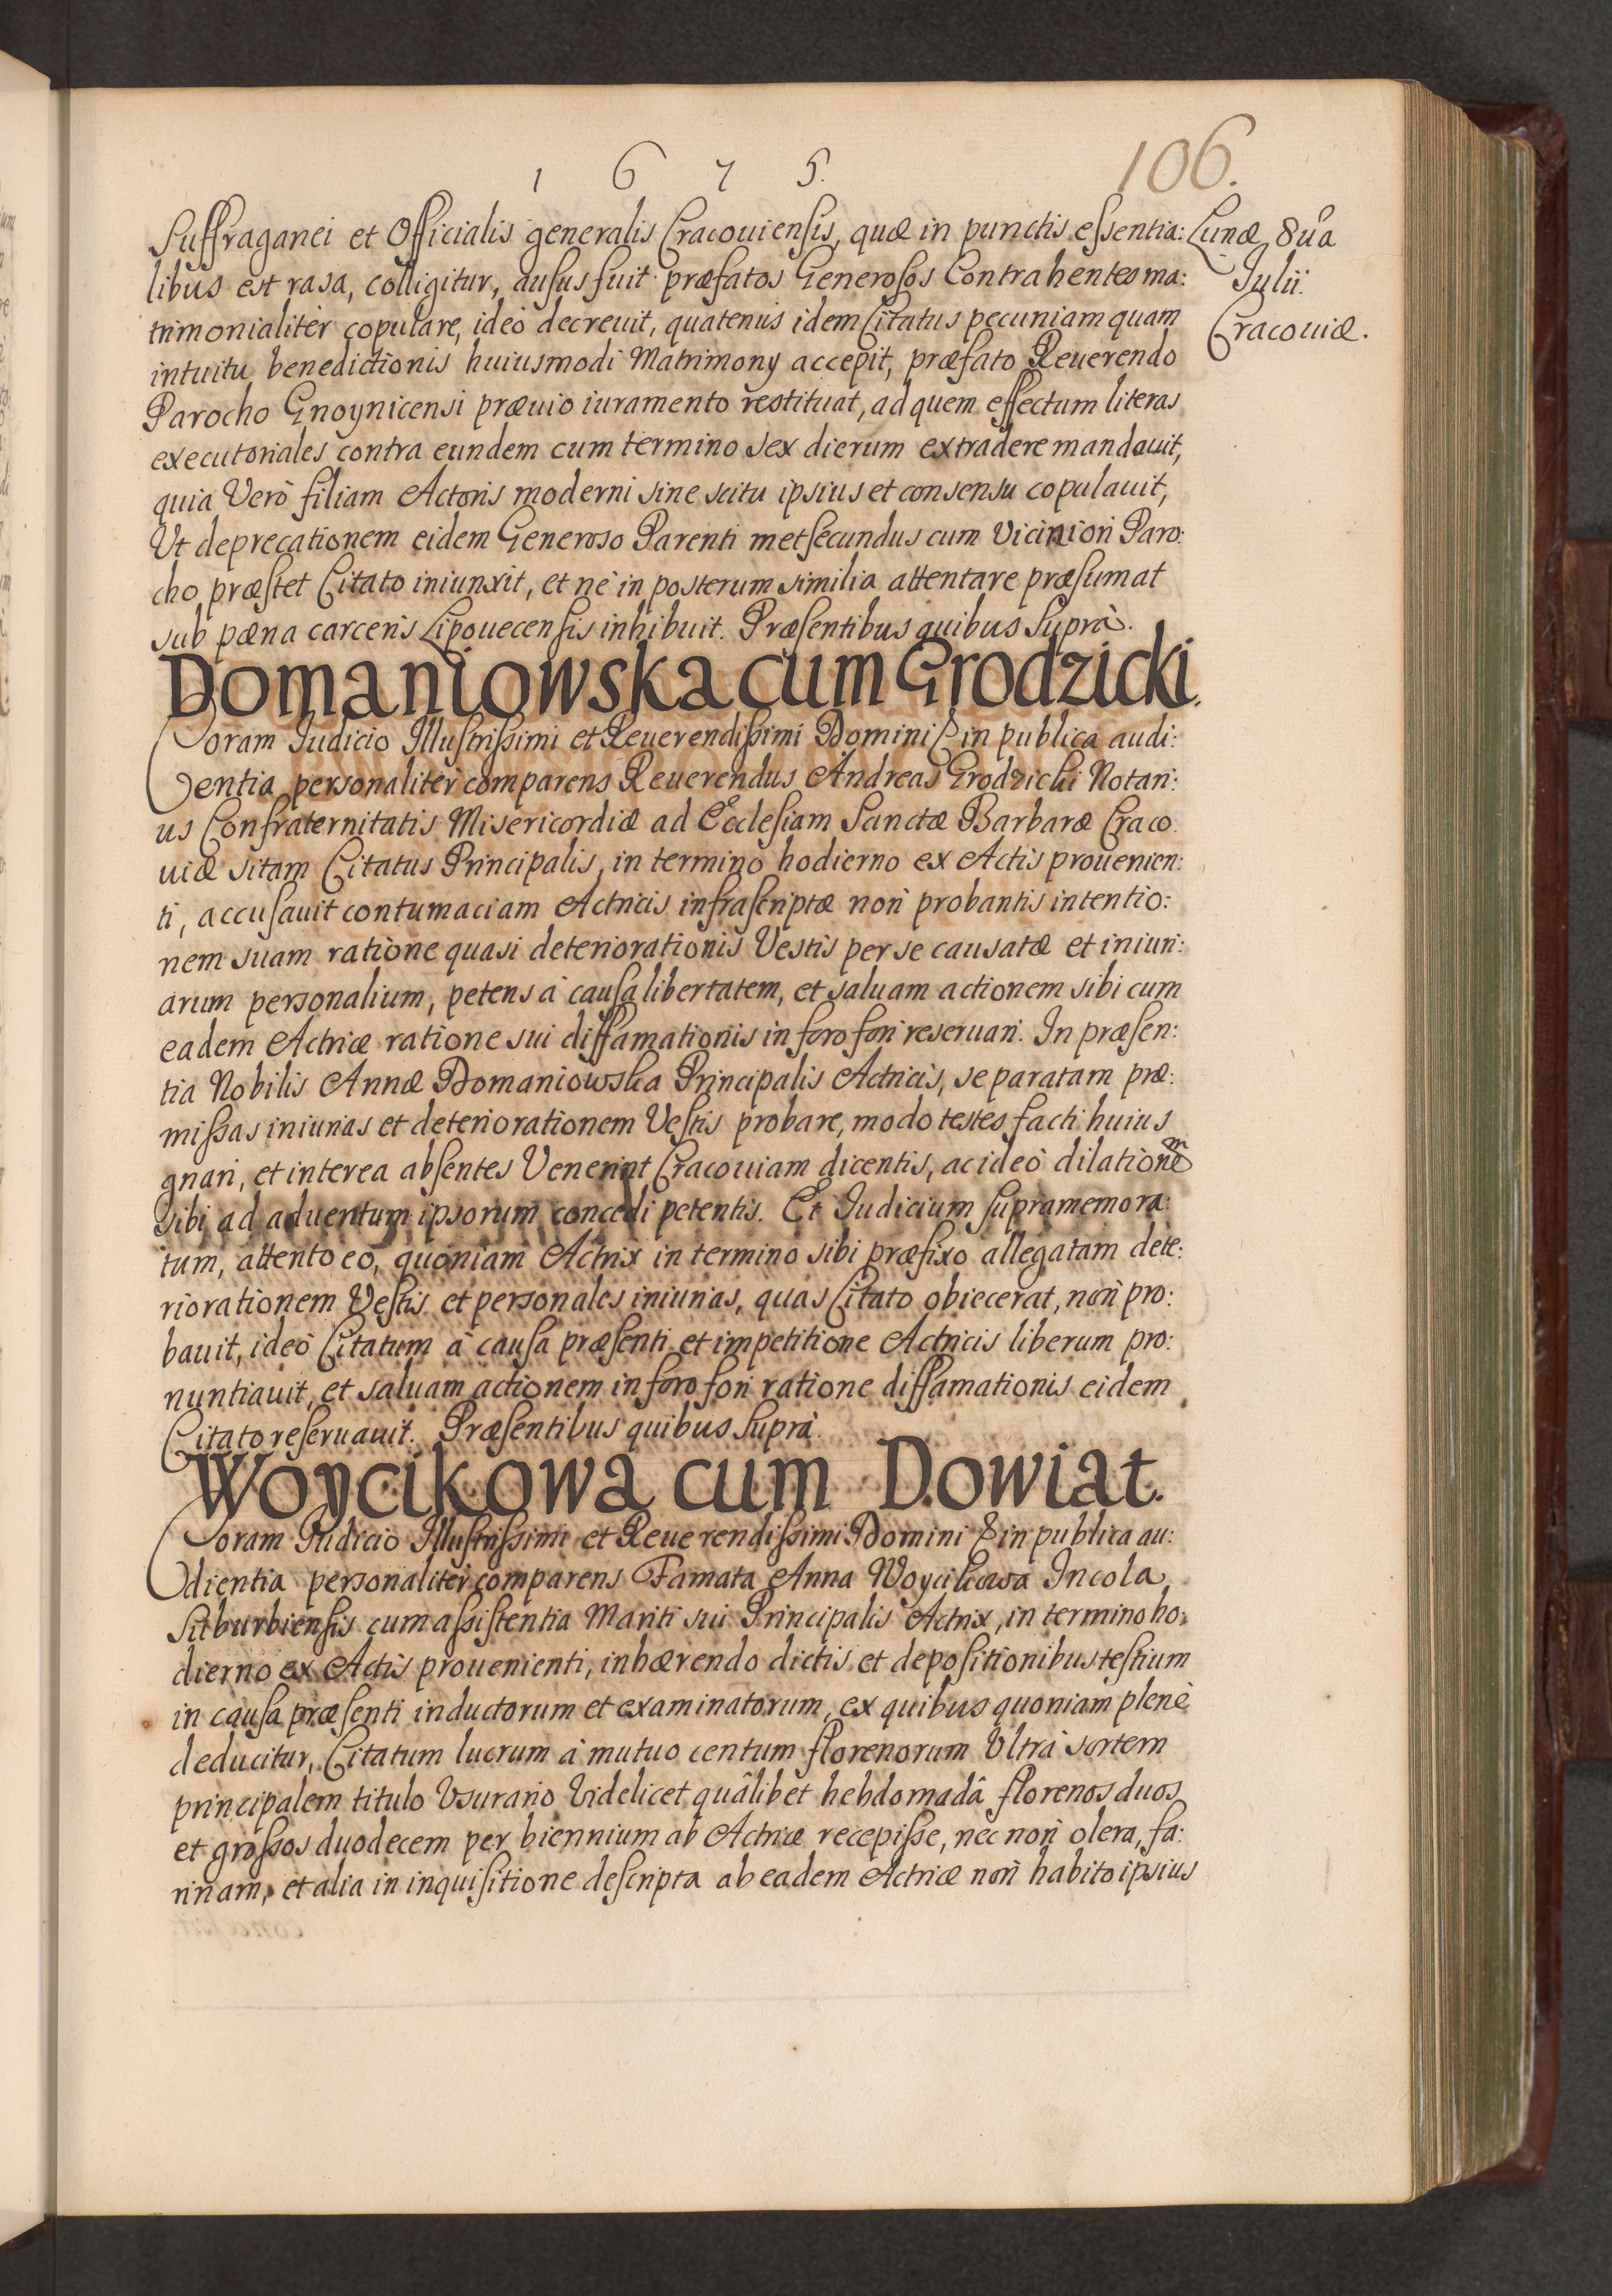 1 6 7 5.
106.
Lunæ 8ua
Iulii.
Cracouiæ.
Suffraganei et Officialis generalis Cracouiensis, quæ in punctis essentia:
libus est rasa, colligitur, ausus fuit præfatos Generosos Contrahentes ma:
trimonialiter copulare, ideò decreuit, quatenus idem Citatus pecuniam quam
intuitu benedictionis huiusmodi Matrimony accepit, præfato Reuerendo
Parocho Gnoynicensi præuio iuramento restituat, ad quem effectum literas
executoriales contra eundem cum termino sex dierum extradere mandauit,
quia Verò filiam Actoris moderni sine scitu ipsius et consensu copulauit,
Vt deprecationem eidem Generoso Parenti metsecundus cum Viciniori Paro:
cho præstet Citato iniunxit, et nè in posterum similia attentare præsumat
sub pæna carceris Lipouecensis inhibuit. Præsentibus quibus Suprà.
Domaniowska cum Grodzicki.
Coram Iudicio Illustrissimi et Reuerendissimi Domini & in publica audi:
entia personaliter comparens Reuerendus Andreas Grodzicki Notari:
us Confraternitatis Misericordiæ ad Ecclesiam Sanctæ Barbaræ Craco
uiæ sitam Citatus Principalis, in termino hodierno ex Actis prouenien:
ti, accusauit contumaciam Actricis infrascriptæ non probantis intentio:
nem suam ratione quasi deteriorationis Vestis per se causatæ et iniuri:
arum personalium, petens à causa libertatem, et saluam actionem sibi cum
eadem Actrice ratione sui diffamationis in foro fori reseruari. In præsen:
tia Nobilis Annæ Domaniowska Principalis Actricis, se paratam præ:
missas iniurias et deteriorationem Vestis probare, modo testes facti huius
gnari, et interea absentes Venerint Cracouiam dicentis, ac ideò dilationem
sibi ad aduentum ipsorum concedi petentis. Et Iudicium supramemora:
tum, attento eo, quoniam Actrix in termino sibi præfixo allegatam dete:
riorationem Vestis et personales iniurias, quas Citato obiecerat, non pro:
bauit, ideò Citatum à causa præsenti et impetitione Actricis liberum pro:
nuntiauit, et saluam actionem in foro fori ratione diffamationis eidem
Citato reseruauit. Præsentibus quibus Suprà.
Woycikowa cum Dowiat.
Coram Iudicio Illustrissimi et Reuerendissimi Domini & in publica au:
dientia personaliter comparens Famata Anna Woycikowa Incola
Suburbiensis cum assistentia Mariti sui Principalis Actrix, in termino ho:
dierno ex Actis prouenienti, inhærendo dictis et depositionibus testium
in causa præsenti inductorum et examinatorum, ex quibus quoniam plenè
deducitur, Citatum lucrum à mutuo centum florenorum Vltrà sortem
principalem titulo Vsurario Videlicet quâlibet hebdomadâ florenos duos
et grossos duodecem per biennium ab Actrice recepisse, nec non olera, fa:
rinam, et alia in inquisitione descripta ab eadem Actrice non habito ipsius